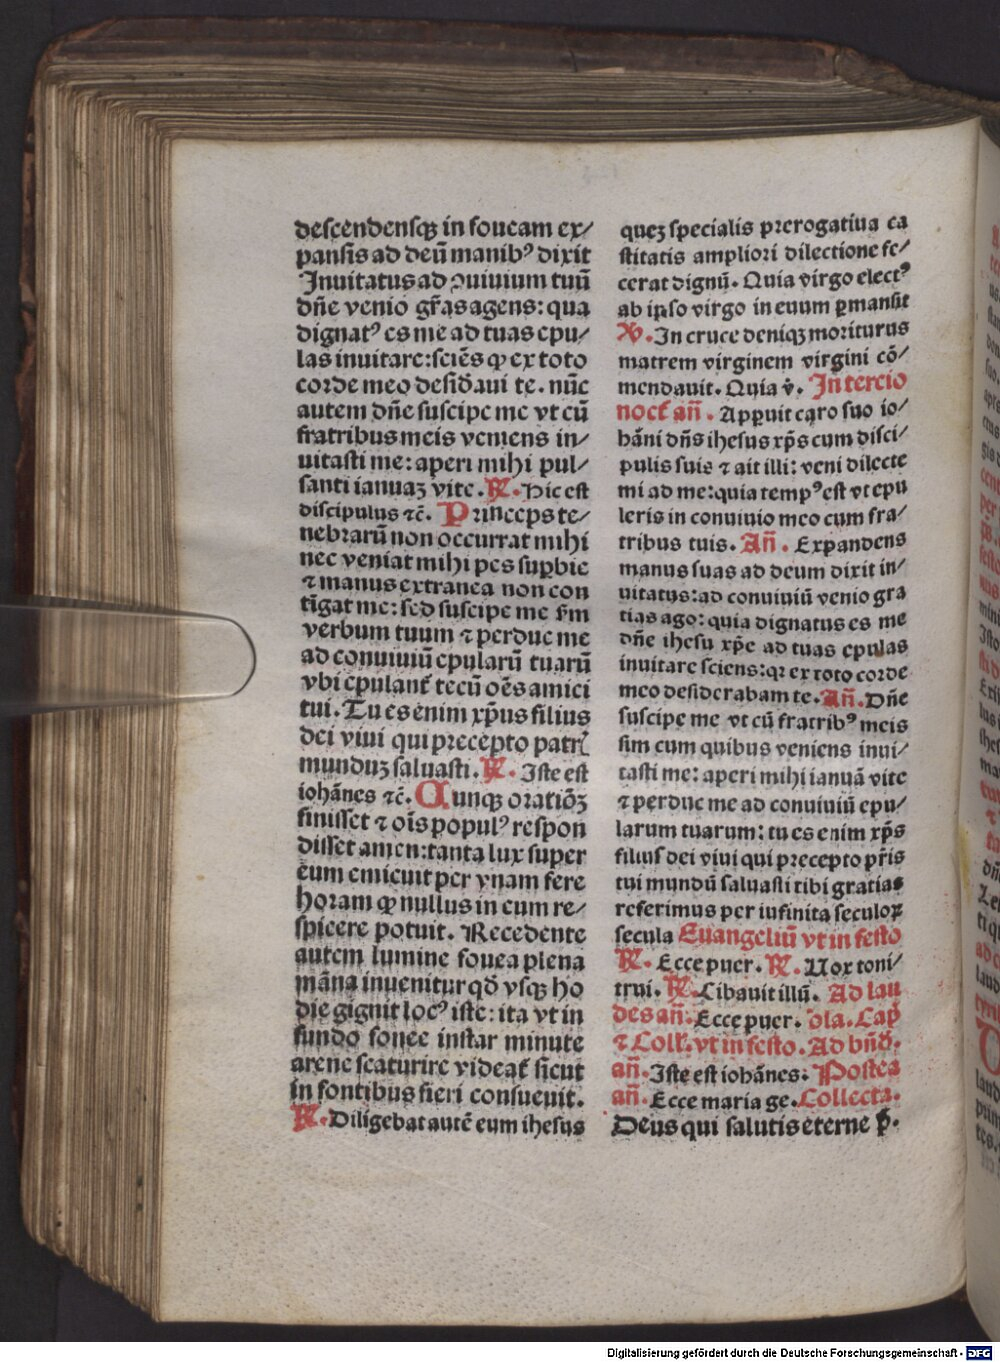 descendensqꝫ in foueam ex/
pansis ad deū manibꝰ dixit
Inuitatus ad ꝯuiuium tuū
dn̄e venio gr̄as agens: qua
dignatꝰ es me ad tuas epu/
las inuitare: sciēs ꝙ ex toto
corde meo desid̄aui te. nūc
autem dn̄e suscipe me vt cū
fratribus meis veniens in/
uitasti me: aperi mihi pul/
santi ianuaꝫ vite. ℟. Hic est
discipulus ⁊c̄. Princeps te/
nebrarū non occurrat mihi
nec veniat mihi pes suꝑbie
⁊ manus extranea non con
tīgat me: sed suscipe me s̄m
verbum tuum ⁊ perduc me
ad conuiuiū epularū tuarū
vbi epulant̄ tecū oēs amici
tui. Tu es enim xp̄us filius
dei viui qui precepto patr̄
munduꝫ saluasti. ℟. Iste est
iohānes ⁊c̄. Cunqꝫ oratiōꝫ
finisset ⁊ oīs populꝰ respon
disset amen: tanta lux super
eum emicuit per vnam fere
horam ꝙ nullus in eum re/
spicere potuit. Recedente
autem lumine fouea plena
māna inuenitur qd̄ vsqꝫ ho
die gignit locꝰ iste: ita vt in
fundo fouee instar minute
arene scaturire videat̄ sicut
in fontibus fieri consueuit.
℟. Diligebat autē eum ihesus
queꝫ specialis prerogatiua ca
stitatis ampliori dilectione fe/
cerat dignū. Quia virgo electꝰ
ab ipso virgo in euum ꝑmansit
℣. In cruce deniqꝫ moriturus
matrem virginem virgini cō/
mendauit. Quia v̄. In tercio
noct̄ an̄. Apꝑuit caro suo io/
hāni dn̄s ihesus xp̄s cum disci/
pulis suis ⁊ ait illi: veni dilecte
mi ad me: quia tempꝰ est vt epu
leris in conuiuio meo cum fra/
tribus tuis. An̄. Expandens
manus suas ad deum dixit in/
uitatus: ad conuiuiū venio gra
tias ago: quia dignatus es me
dn̄e ihesu xp̄e ad tuas epulas
inuitare sciens: qꝛ ex toto corde
meo desiderabam te. An̄. Dn̄e
suscipe me vt cū fratribꝰ meis
sim cum quibus veniens inui/
tasti me: aperi mihi ianuā vite
⁊ perduc me ad conuiuiū epu/
larum tuarum: tu es enim xp̄s
filius dei viui qui precepto pr̄is
tui mundū saluasti tibi gratias
referimus per iufinita seculoꝝ
secula Euangeliū vt in festo
℟. Ecce puer. ℟. Uox toni/
trui. ℟. Cibauit illū. Ad lau
des an̄. Ecce puer. ōla. Cap̄
⁊ Coll̄. vt in festo. Ad bn̄d̄.
an̄. Iste est iohānes. Postea
an̄. Ecce maria ge. Collecta.
Deus qui salutis eterne p̄.
Digitalisierung gefördert durch die Deutsche Forschungsgemeinschaft - DFG